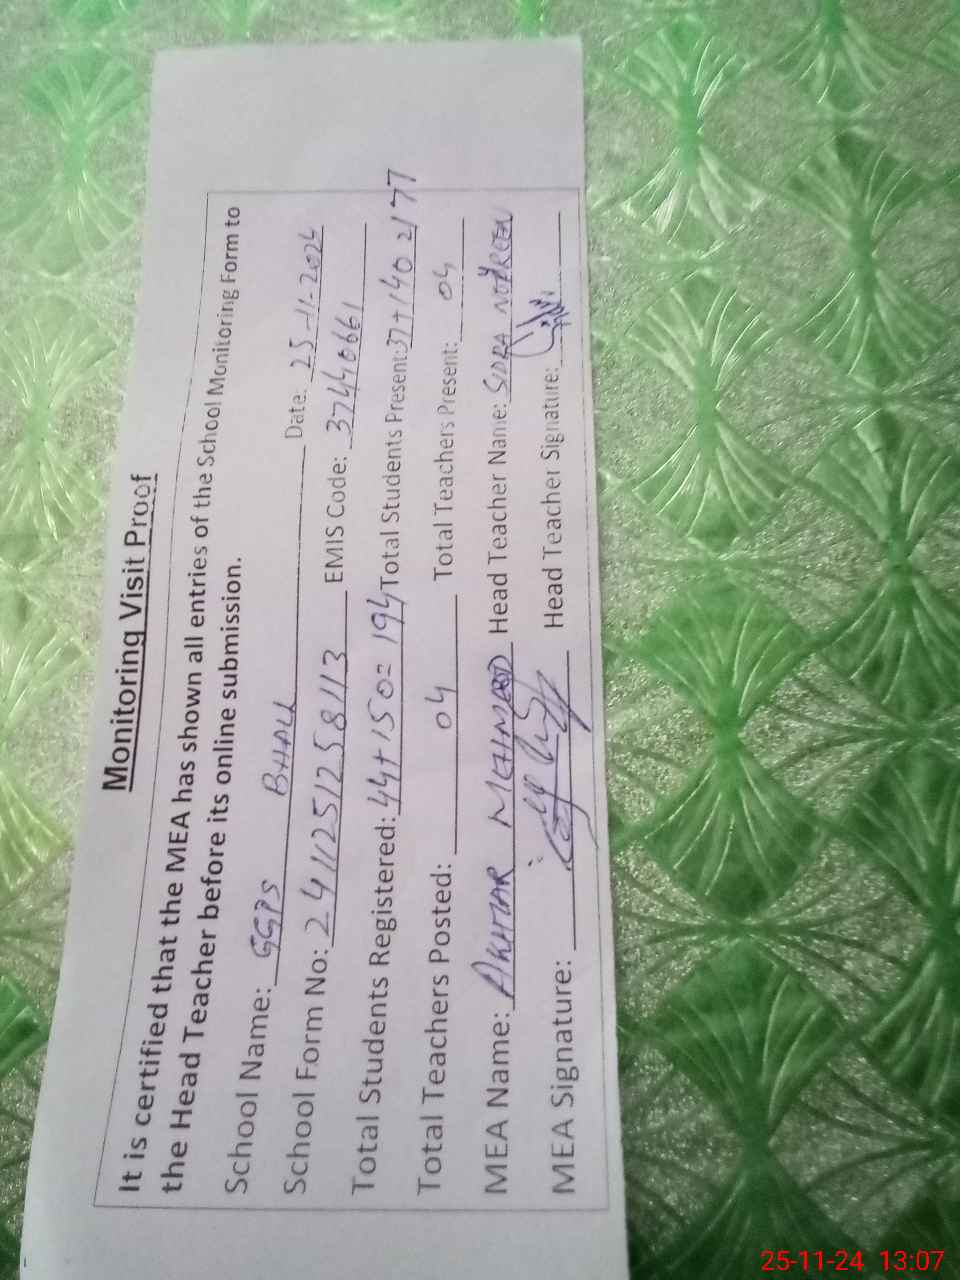 Monitoring Visit Proof
It is certified that the MEA has shown all entries of the School Monitoring Form to
the Head Teacher before its online submission.
School Name: GGPS BHALL Date: 25-11-2024
School Form No: 2411251258113 EMIS Code: 37440661
Total Students Registered: 44+150=194 Total Students Present: 37+140=177
Total Teachers Posted: 04 Total Teachers Present: 04
MEA Name: AKHTAR MEHMOOD Head Teacher Name: SIDRA NOUREEN
MEA Signature: Head Teacher Signature:
25-11-24 13:07